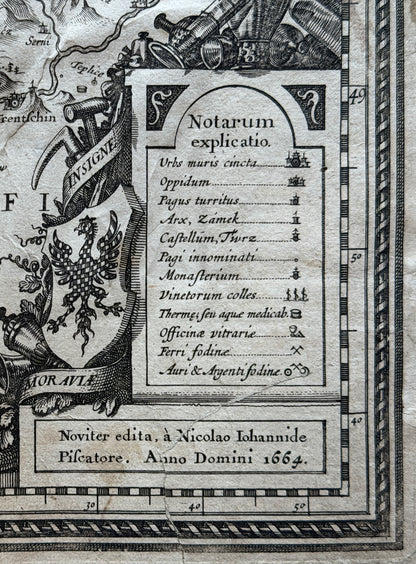 Serni
Tepliz
Trentschin
49
Notarum
explicatio.
Urbs muris cincta
Oppidum
Pagus turritus
Arx, Zamek
Castellum, Twrz
Pagi innominati
Monasterium
Vinetorum colles
Thermę, seu aquæ medicab.
Officinæ vitrariæ
Ferri fodinæ
Auri & Argenti fodinæ
INSIGNE
F I
50
MORAVIÆ
40
Noviter edita, à Nicolao Iohannide
Piscatore. Anno Domini 1664.
30
40
50